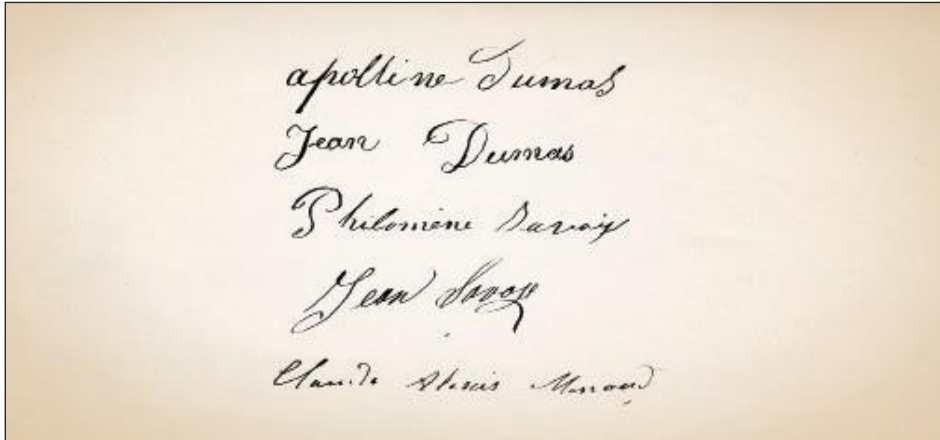 apolline Dumas
Jean Dumas
Philomène
Jean Savoye
Claude Alexis